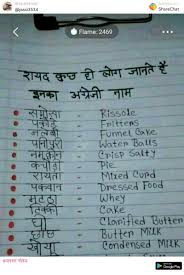 @pass3534
ShareChat
Flame: 2469
रायद कुछ ही लोग जानते हैं
इनका अंग्रेजी नाम
समोसा - Rissole
पकोड़े - Fritters
जलेबी - Funnel Cake
पानीपूरी - Water Balls
नमकीन - Crisp Salty
कचौरी - Pie
रायता - Mixed Curd
पकवान - Dressed Food
मट्ठा - Whey
टिक्की - Cake
घी - Clarified Butter
छाछ - Butter Milk
खोया - Condensed Milk
Google Play